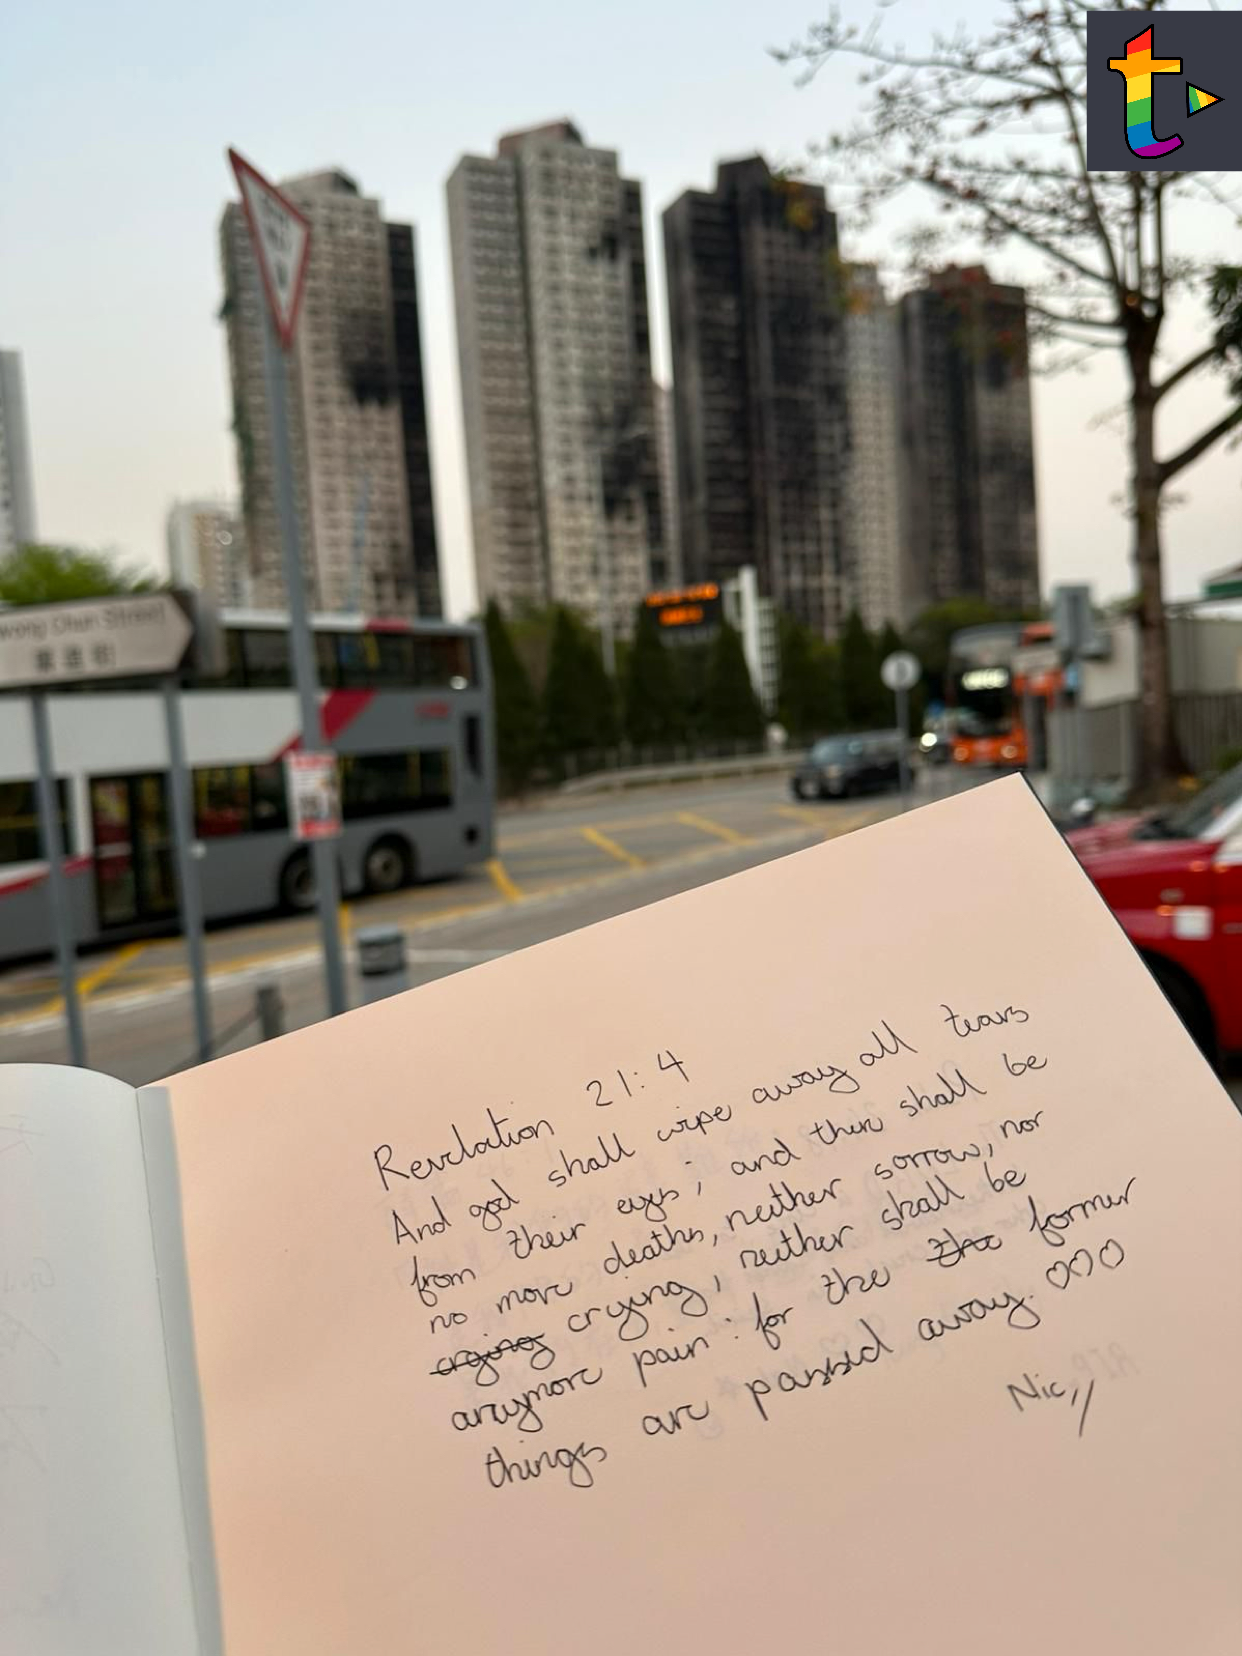 t
Kwong Chun Street
Revelation 21:4
And god shall wipe away all tears
from their eyes; and there shall be
no more deaths, neither sorrow, nor
crying crying, neither shall be
anymore pain: for the the former
things are passed away. ♡♡♡
Nic,//